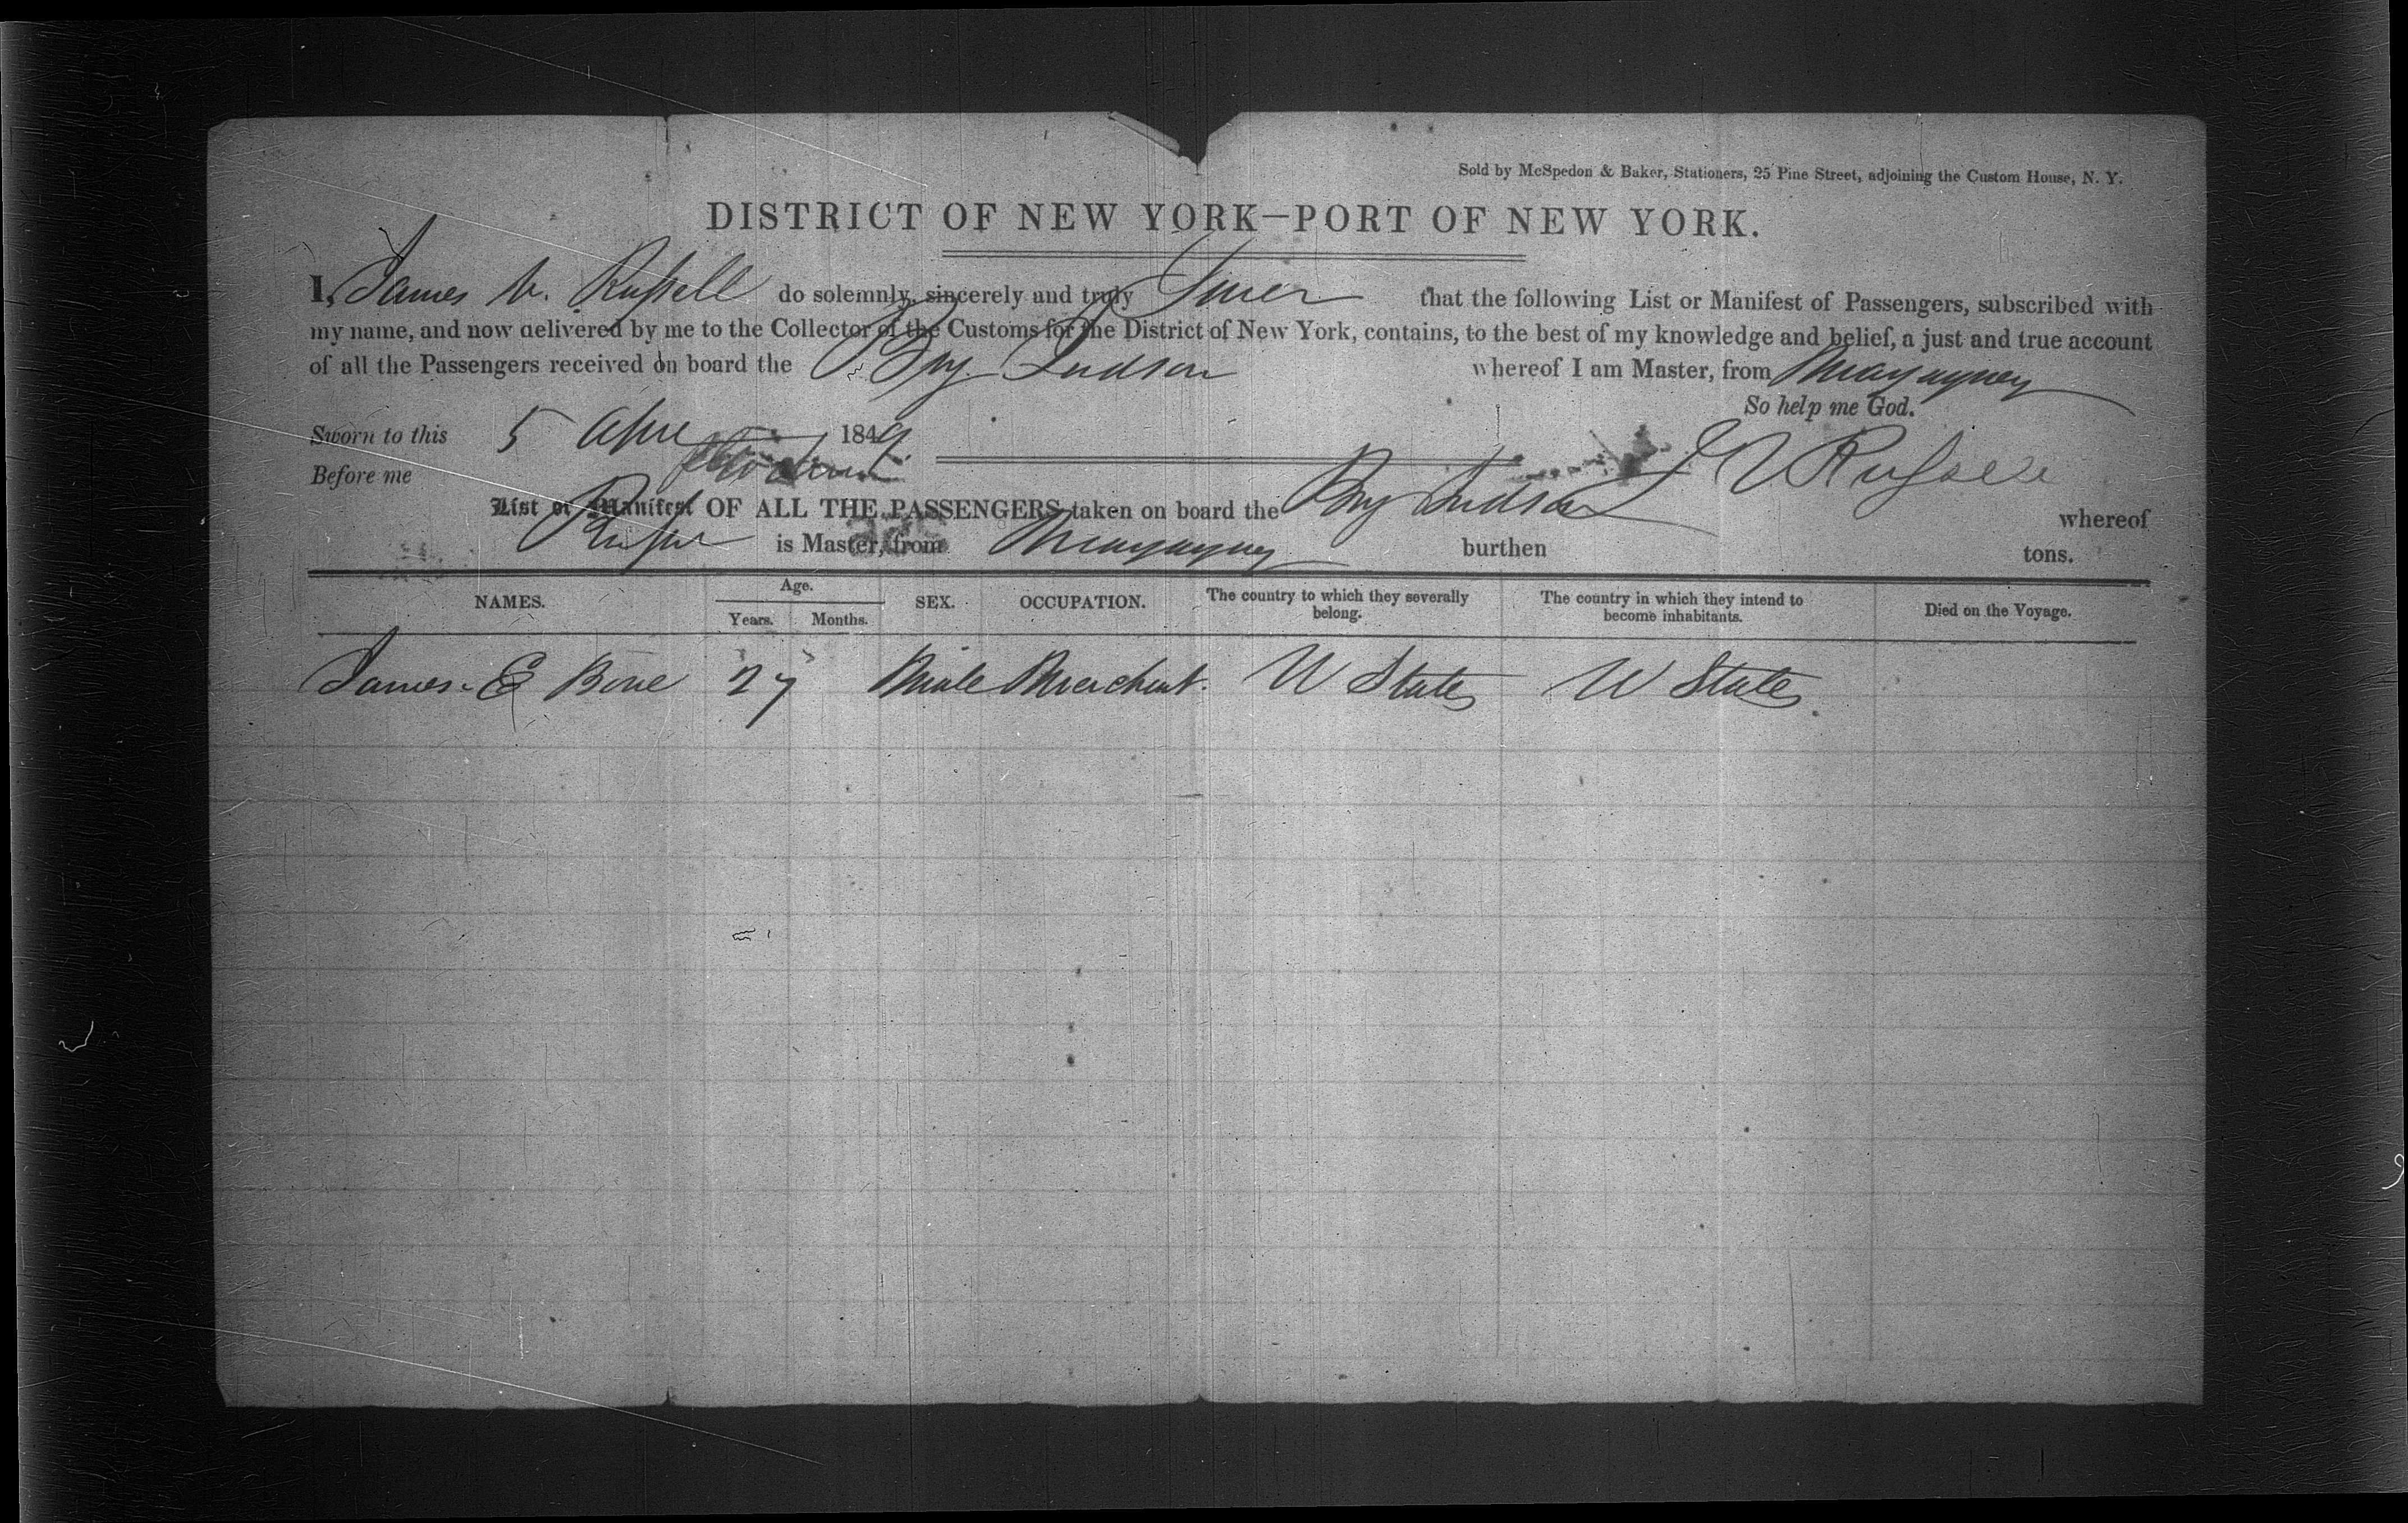 Sold by McSpedon & Baker, Stationers, 25 Pine Street, adjoining the Custom House, N. Y.
DISTRICT OF NEW YORK—PORT OF NEW YORK.
I, James V. Russell do solemnly, sincerely and truly Swear that the following List or Manifest of Passengers, subscribed with
my name, and now delivered by me to the Collector of the Customs for the District of New York, contains, to the best of my knowledge and belief, a just and true account
of all the Passengers received on board the Brig Judson whereof I am Master, from Mayaguez
So help me God.
Sworn to this 5 Apre 1849.
Before me J V Russell
List or Manifest OF ALL THE PASSENGERS taken on board the Brig Judson whereof
Russel is Master, from Mayaguez burthen tons.
NAMES. Age. Years. Months. SEX. OCCUPATION. The country to which they severally belong. The country in which they intend to become inhabitants. Died on the Voyage.
James E 27 Male Merchant. U States U States